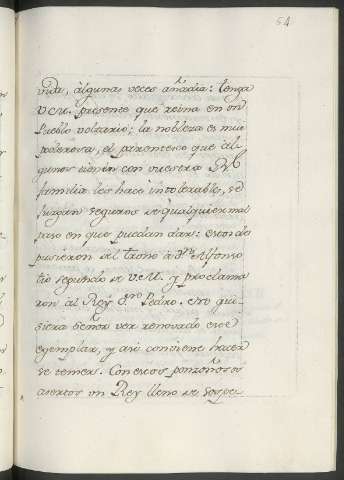 54
vida, algunas veces añadia: tenga
V.M. presente que reina en vn
Pueblo voltario; la nobleza es mui
poderosa, el parentesco que al-
gunos tienen con vuestra Rl
familia les hace intolerables, se
juzgan seguros de qualquier mal
paso en que puedan dar: estos de
pusieron del trono á Dn Alfonso
tio segundo de V.M. y proclama
ron al Rey Dn Pedro. No qui-
siera Señor ver renovado este
exemplar, y asi conviene hacer
se temer. Con estos ponzoñosos
asertos un Rey lleno de sospe